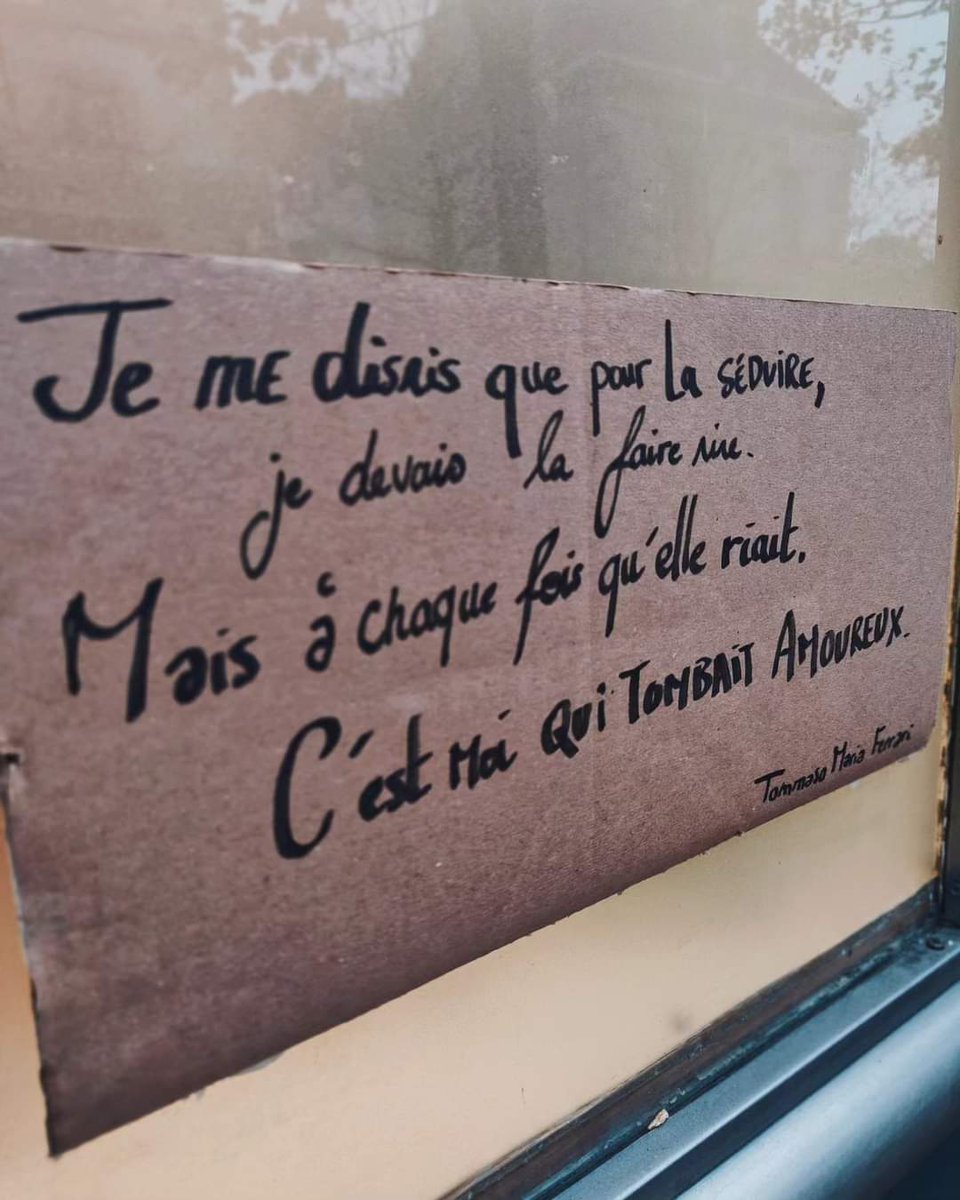 Je me disais que pour la SÉDUIRE,
je devais la faire rire.
Mais à chaque fois qu'elle riait.
C'est Moi QUi TOMBAIT AMOUREUX.
Tommaso Maria Ferrari